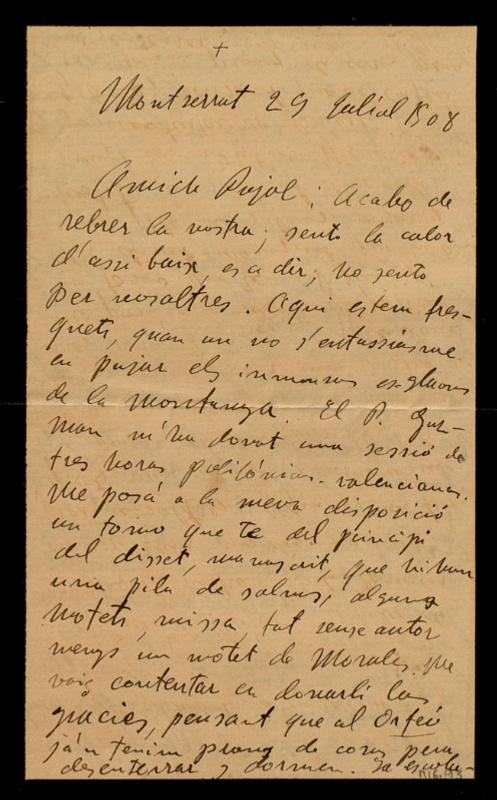 +
Montserrat 29 Juliol 1908
Amich Pujol: Acabo de
rebrer la vostra; sento la calor
d'assi baix, es a dir, ho sento
per vosaltres. Aqui estem fres-
quets, quan un no s'entussiasme
en pujar els inmensos esglaons
de la montanya. El P. Guz-
man m'ha donat una sessió de
tres horas polifónica-valenciana.
Me posá a la meva disposició
un tomo que te del principi
del disset, manuscrit, que hi han
una pila de salms, alguns
motets, missa, tot sense autor
menys un motet de Morales. Me
vaig contentar en donarli las
gracies, pensant que al Orfeó
ja'n tenim prous de coses pera
desenterrar y dormen. La escola-